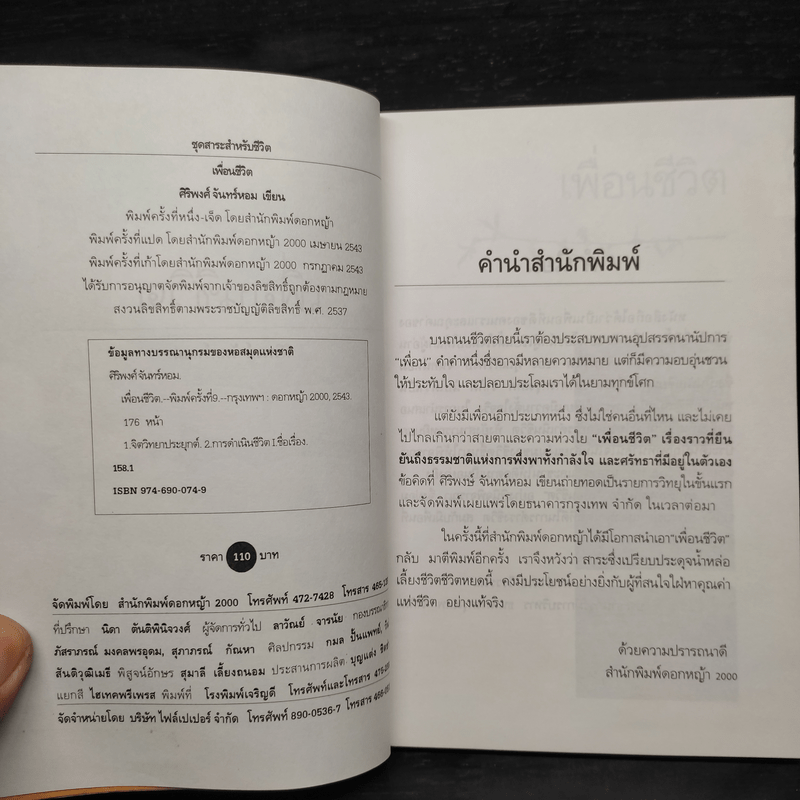 ชุดสาระสำหรับชีวิต
เพื่อนชีวิต
ศิริพงศ์ จันทร์หอม เขียน
พิมพ์ครั้งที่หนึ่ง-เจ็ด โดยสำนักพิมพ์ดอกหญ้า
พิมพ์ครั้งที่แปด โดยสำนักพิมพ์ดอกหญ้า 2000 เมษายน 2543
พิมพ์ครั้งที่เก้าโดยสำนักพิมพ์ดอกหญ้า 2000 กรกฎาคม 2543
ได้รับการอนุญาตจัดพิมพ์จากเจ้าของลิขสิทธิ์ถูกต้องตามกฎหมาย
สงวนลิขสิทธิ์ตามพระราชบัญญัติลิขสิทธิ์ พ.ศ. 2537
ข้อมูลทางบรรณานุกรมของหอสมุดแห่งชาติ
ศิริพงศ์ จันทร์หอม.
เพื่อนชีวิต.--พิมพ์ครั้งที่9.--กรุงเทพฯ : ดอกหญ้า 2000, 2543.
176 หน้า
1.จิตวิทยาประยุกต์. 2.การดำเนินชีวิต I.ชื่อเรื่อง.
158.1
ISBN 974-690-074-9
ราคา 110 บาท
จัดพิมพ์โดย สำนักพิมพ์ดอกหญ้า 2000 โทรศัพท์ 472-7428 โทรสาร
ที่ปรึกษา นิดา ตันติพินิจวงศ์ ผู้จัดการทั่วไป ลาวัณย์ จารนัย
ภัสราภรณ์ มงคลพรอุดม, สุภาภรณ์ กัณหา ศิลปกรรม กมล ปั้นแพทย์,
สันติวุฒิเมธี พิสูจน์อักษร สุมาลี เลี้ยงถนอม ประสานการผลิต บุญแต่ง
แยกสี ไฮเทคพรีเพรส พิมพ์ที่ โรงพิมพ์เจริญดี โทรศัพท์และโทรสาร
จัดจำหน่ายโดย บริษัท ไฟล์เปเปอร์ จำกัด โทรศัพท์ 890-0536-7 โทรสาร
คำนำสำนักพิมพ์
บนถนนชีวิตสายนี้เราต้องประสบพบพานอุปสรรคนานัปการ
"เพื่อน" คำคำหนึ่งซึ่งอาจมีหลายความหมาย แต่ก็มีความอบอุ่นชวน
ให้ประทับใจ และปลอบประโลมเราได้ในยามทุกข์โศก
แต่ยังมีเพื่อนอีกประเภทหนึ่ง ซึ่งไม่ใช่คนอื่นที่ไหน และไม่เคย
ไปไกลเกินกว่าสายตาและความห่วงใย "เพื่อนชีวิต" เรื่องราวที่ยืน
ยันถึงธรรมชาติแห่งการพึ่งพาทั้งกำลังใจ และศรัทธาที่มีอยู่ในตัวเอง
ข้อคิดที่ ศิริพงษ์ จันทน์หอม เขียนถ่ายทอดเป็นรายการวิทยุในขั้นแรก
และจัดพิมพ์เผยแพร่โดยธนาคารกรุงเทพ จำกัด ในเวลาต่อมา
ในครั้งนี้ที่สำนักพิมพ์ดอกหญ้าได้มีโอกาสนำเอา"เพื่อนชีวิต"
กลับ มาตีพิมพ์อีกครั้ง เราจึงหวังว่า สาระซึ่งเปรียบประดุจน้ำหล่อ
เลี้ยงชีวิตชีวิตหยดนี้ คงมีประโยชน์อย่างยิ่งกับผู้ที่สนใจใฝ่หาคุณค่า
แห่งชีวิต อย่างแท้จริง
ด้วยความปรารถนาดี
สำนักพิมพ์ดอกหญ้า 2000